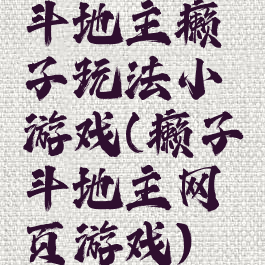 斗地主癞
子玩法小
游戏(癞子
斗地主网
页游戏)